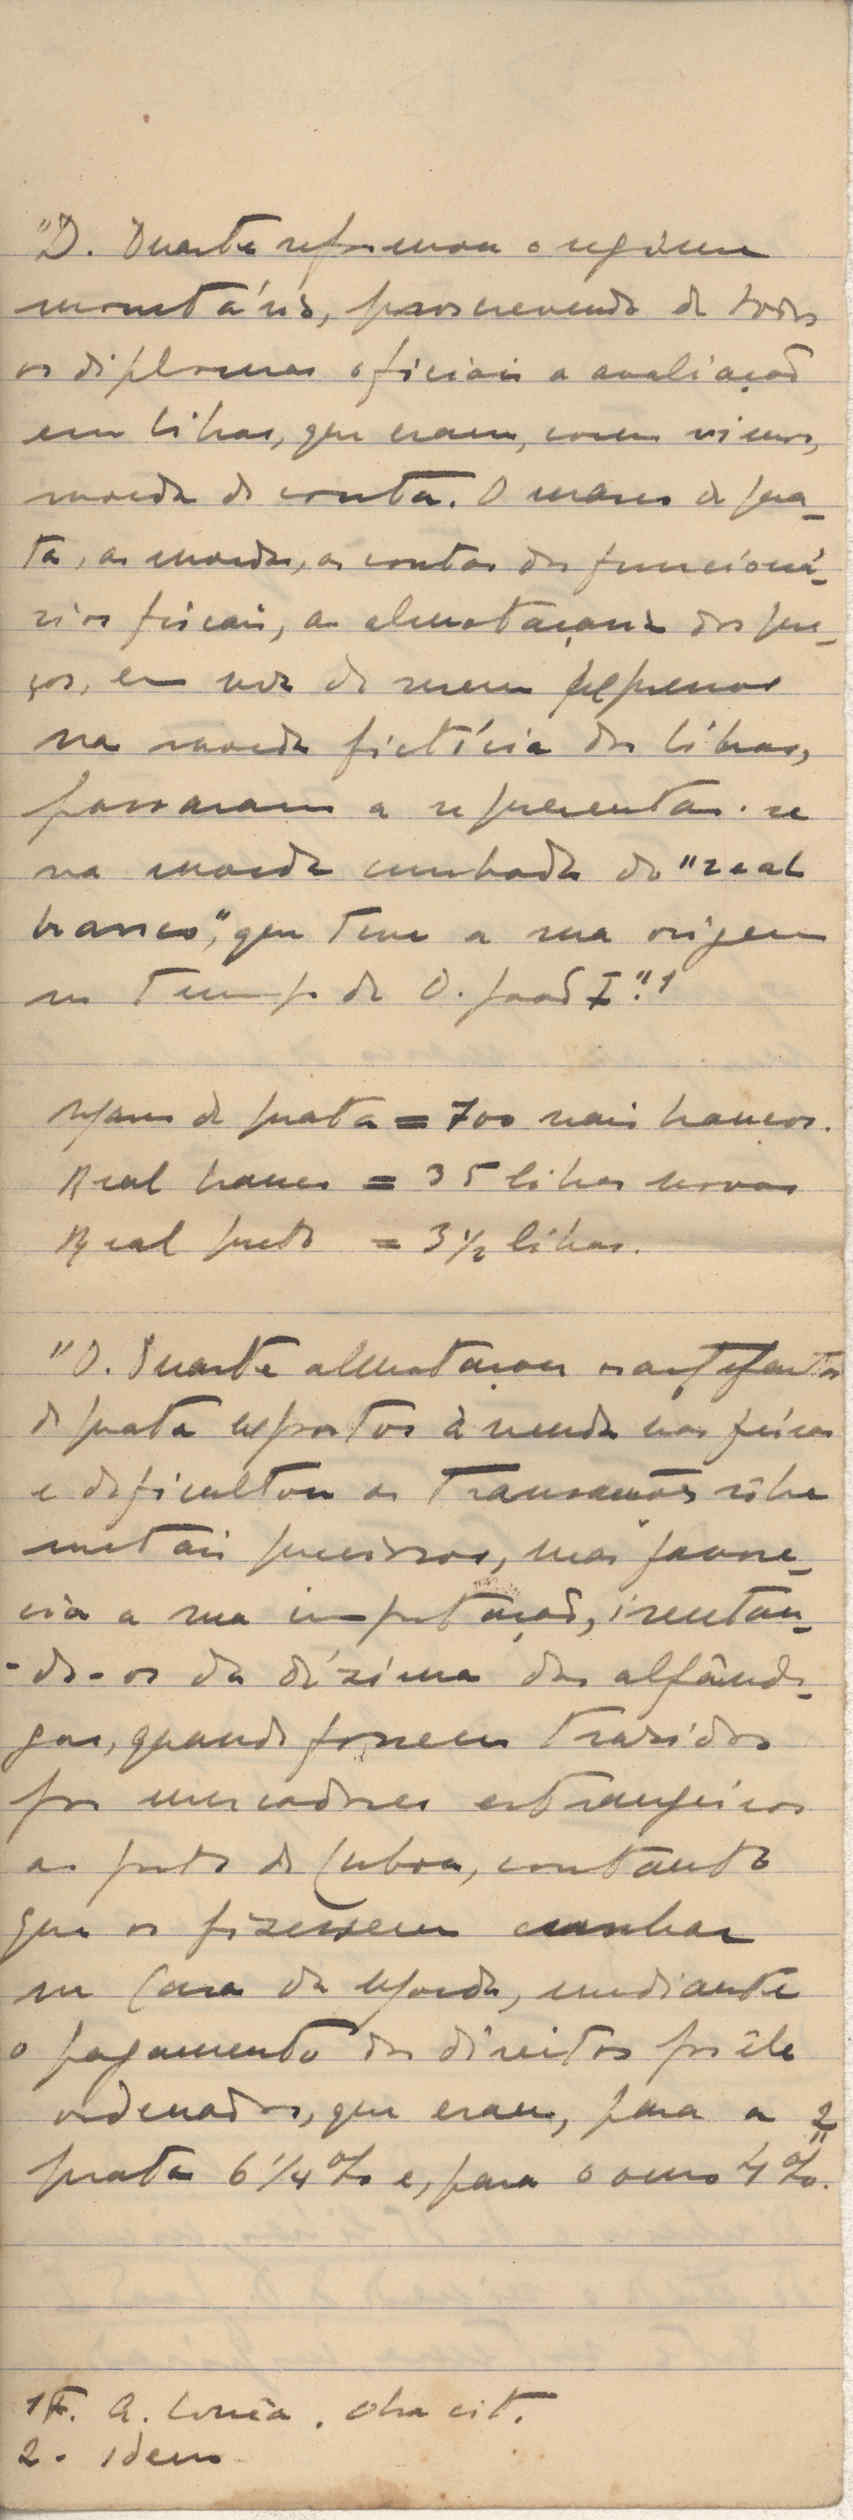 "D. Duarte reformou o regime
monetário, proscrevendo de todos
os diplomas oficiais a avaliação
em libras, que eram, como vimos,
moeda de conta. O marco de pra-
ta, as moedas, as contas dos funcioná-
rios fiscais, a almotaçaria dos pre-
ços, em vez de serem expressos
na moeda fictícia das libras,
passaram a representar-se
na moeda cunhada do "real
branco", que teve a sua origem
no tempo de D. João I".1
Marco de prata = 700 reais brancos.
Real branco = 35 libras novas
Real preto = 3 1/2 libras.
"D. Duarte almotaçou os artefactos
de prata expostos à venda nas feiras
e dificultou as transacções sôbre
metais preciosos, mas favore-
cia a sua importação, isentan-
-do-os da dízima das alfânde-
gas, quando fossem trazidos
por mercadores estrangeiros
ao porto de Lisboa, contanto
que os fizessem cunhar
na Casa da Moeda, mediante
o pagamento dos direitos por êle
ordenados, que eram, para a
prata 6 1/4 % e, para o ouro 4 %." 2
1 F. A. Corrêa. Obra cit.
2. Idem